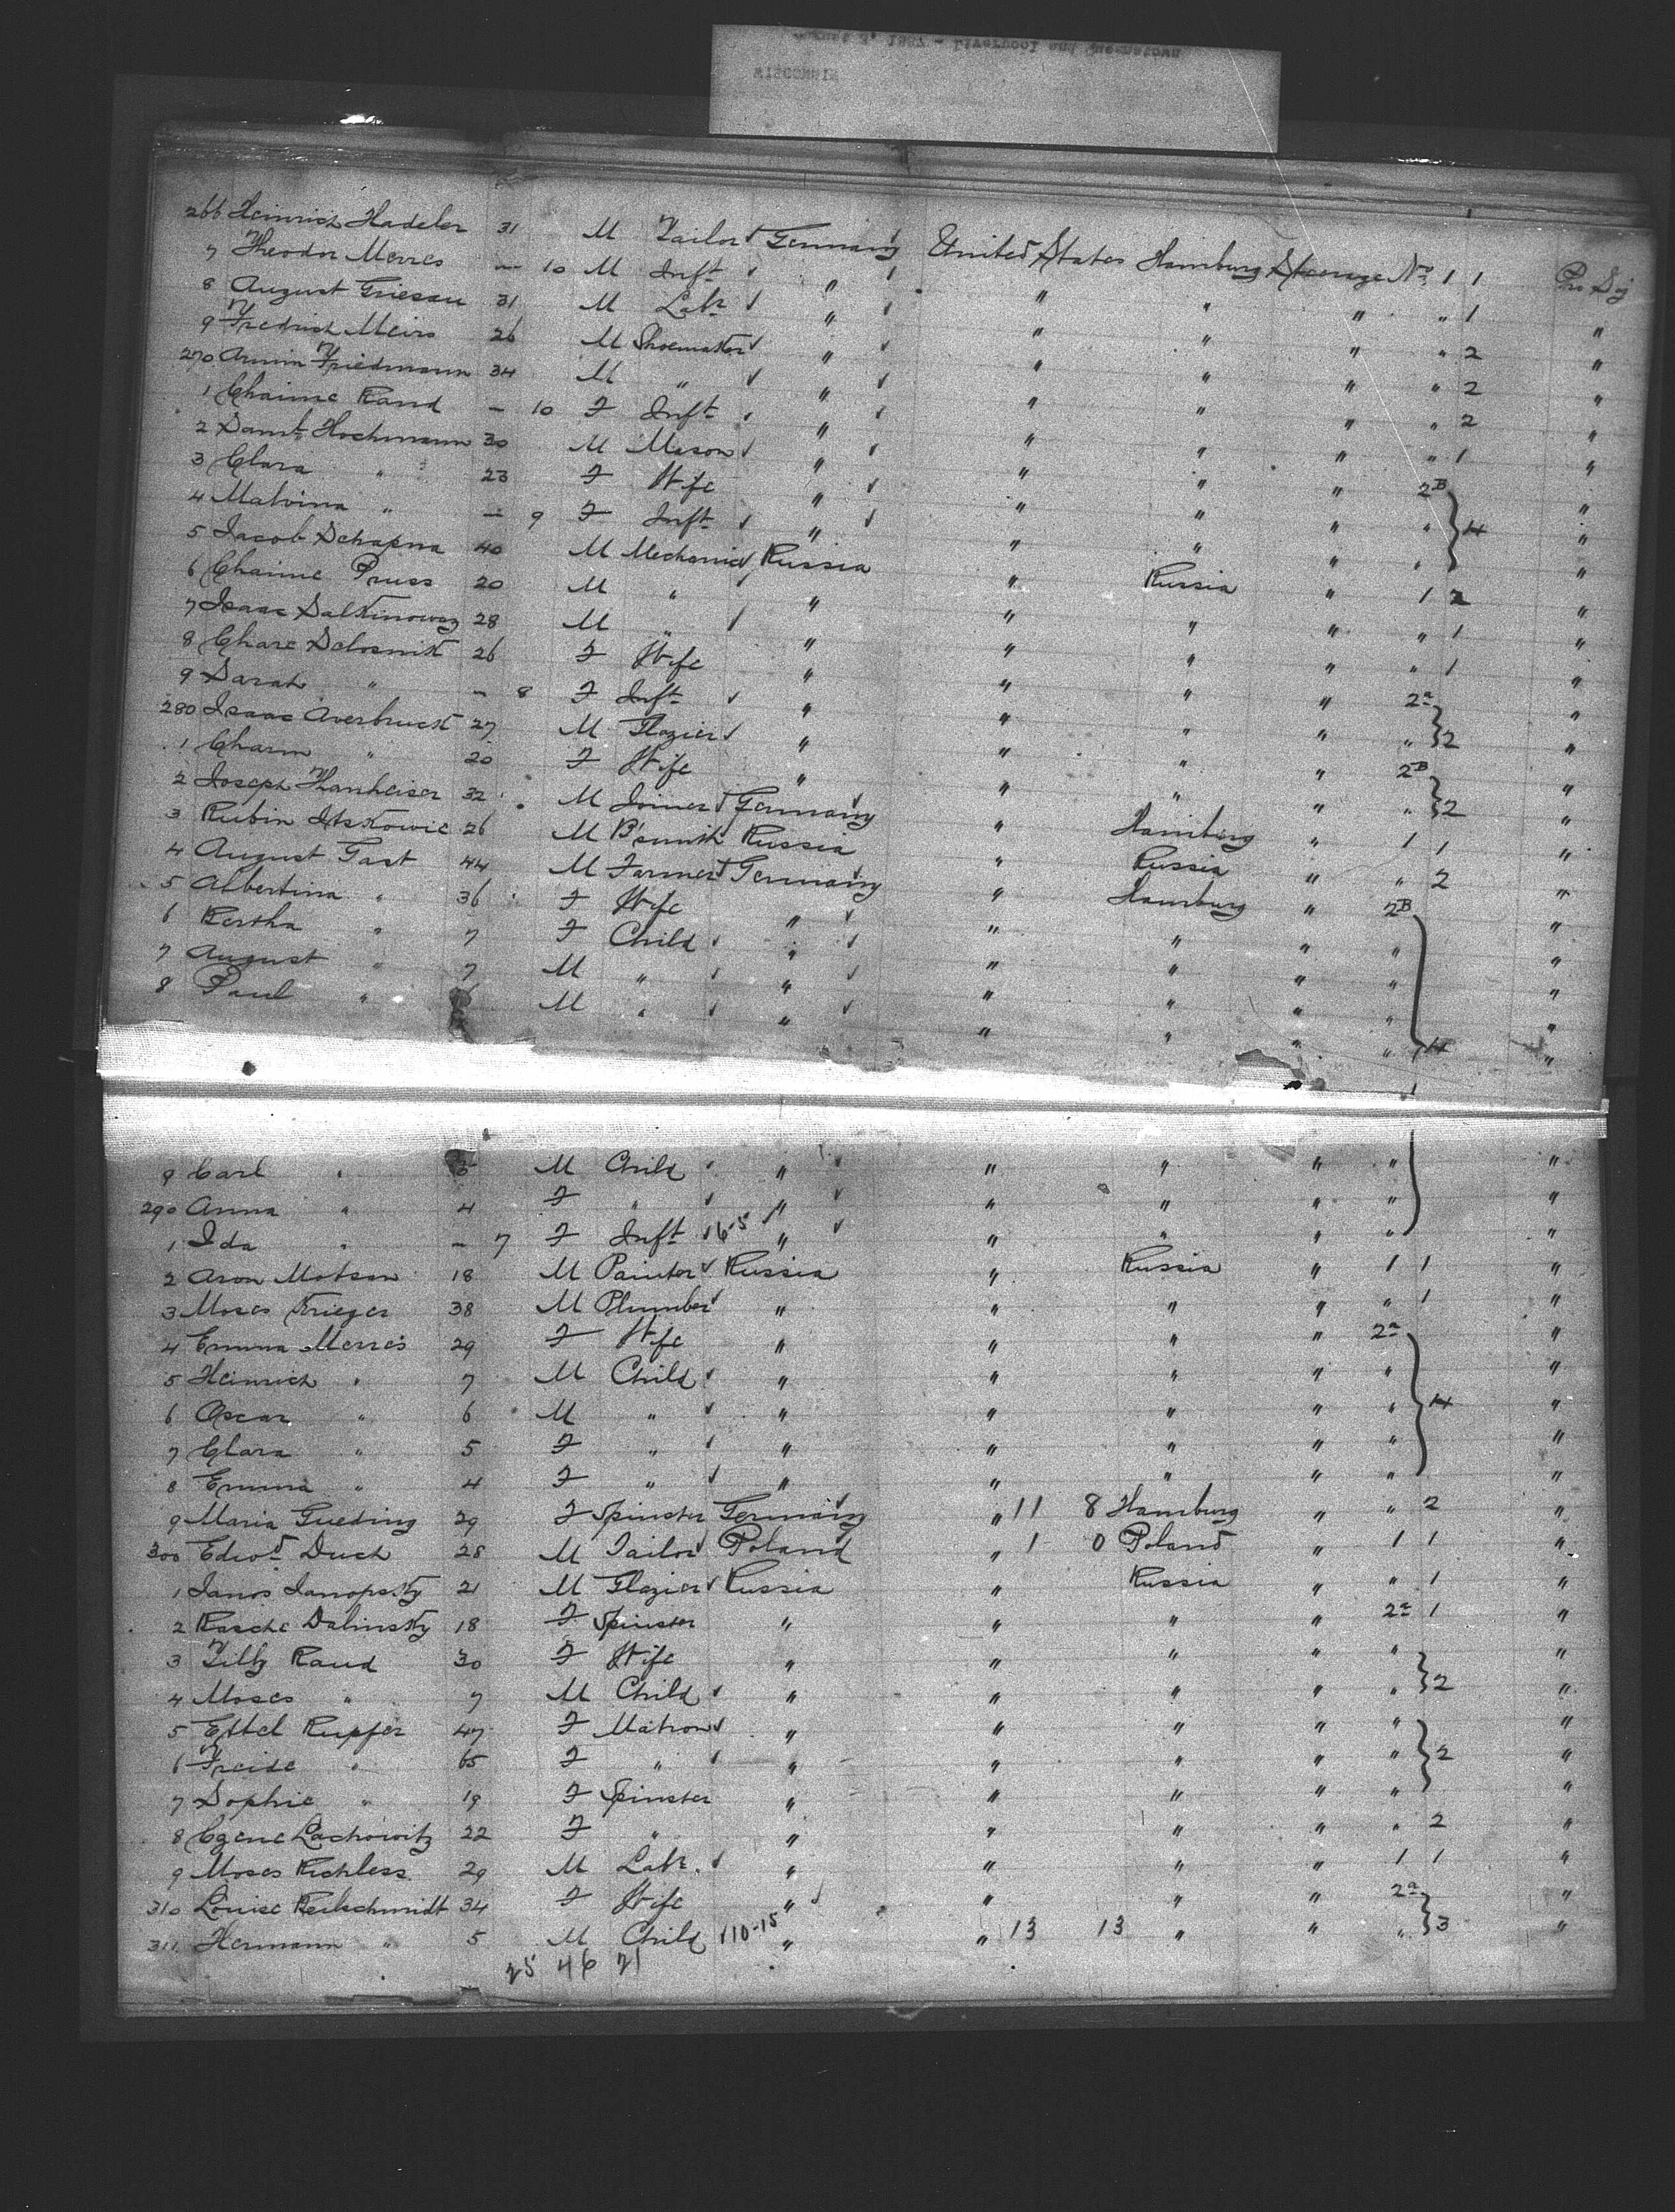 August 4, 1887 - Liverpool and Queenstown
WISCONSIN
266 Heinrich Hadeler 31 M Tailor Germany United States Hamburg Steerage No. 1 1 Pro Soj
7 Theodor Merres — 10 M Inft " " " " " 1 "
8 August Griesau 31 M Labr " " " " " 2 "
9 Fredrich Meirs 26 M Shoemaker " " " " " 2 "
270 Armin Friedmann 34 M " " " " " " 2 "
1 Chaime Rand — 10 F Inft " " " " " 1 "
2 Saml. Hochmann 30 M Mason " " " " 2B "
3 Clara " 23 F Wife " " " " " 4 "
4 Malvina " — 9 F Inft " " " " " "
5 Jacob Schapira 40 M Mechanic Russia " Russia " 1 2 "
6 Chaime Pruss 20 M " " " " " " 1 "
7 Isaac 28 M " " " " " " 1 "
8 Chare 26 F Wife " " " " 2a "
9 Sarah " — 8 F Inft " " " " " 2 "
280 Isaac Averbruck 27 M Glazier " " " " 2B "
1 Charm " 20 F Wife " " " " " 2 "
2 Joseph Thanheiser 32 M Joiner Germany " Hamburg " 1 1 "
3 Rubin Itzkowic 26 M B'smith Russia " Russia " " 2 "
4 August Gast 44 M Farmer Germany " Hamburg " 2B "
5 Albertina " 36 F Wife " " " " " "
6 Bertha " 7 F Child " " " " " "
7 August " 7 M " " " " " " "
8 Paul " M " " " " " " 4 "
9 Carl " M Child " " " " " "
290 Anna " 4 F " " " " " " "
1 Ida " — 7 F Inft 6-5 " " " " " "
2 Aron Motson 18 M Painter Russia " Russia " 1 1 "
3 Moses Krieger 38 M Plumber " " " " " 1 "
4 Emma Merres 29 F Wife " " " " 2a "
5 Heinrich " 7 M Child " " " " " "
6 Oscar " 6 M " " " " " " 4 "
7 Clara " 5 F " " " " " " "
8 Emma " 4 F " " " " " " "
9 Maria Gueding 29 F Spinster Germany " 11 8 Hamburg " " 2 "
300 Edwd. Duch 28 M Tailor Poland " 1 0 Poland " 1 1 "
1 Janos Janopsky 21 M Glazier Russia " Russia " " 1 "
2 Rasche Dalinsky 18 F Spinster " " " " 2a 1 "
3 Tilly Rand 30 F Wife " " " " " "
4 Moses " 7 M Child " " " " " 2 "
5 Ettel Kupfer 47 F Matron " " " " " "
6 Freide " 65 F " " " " " " 2 "
7 Sophie " 19 F Spinster " " " " " "
8 Czene Lachowitz 22 F " " " " " " 2 "
9 Moses Richless 29 M Labr. " " " " 1 1 "
310 Louise Keilschmidt 34 F Wife " " " " 2a "
311 Hermann " 5 M Child 10-15 " " 13 13 " " " 3 "
25 46 21